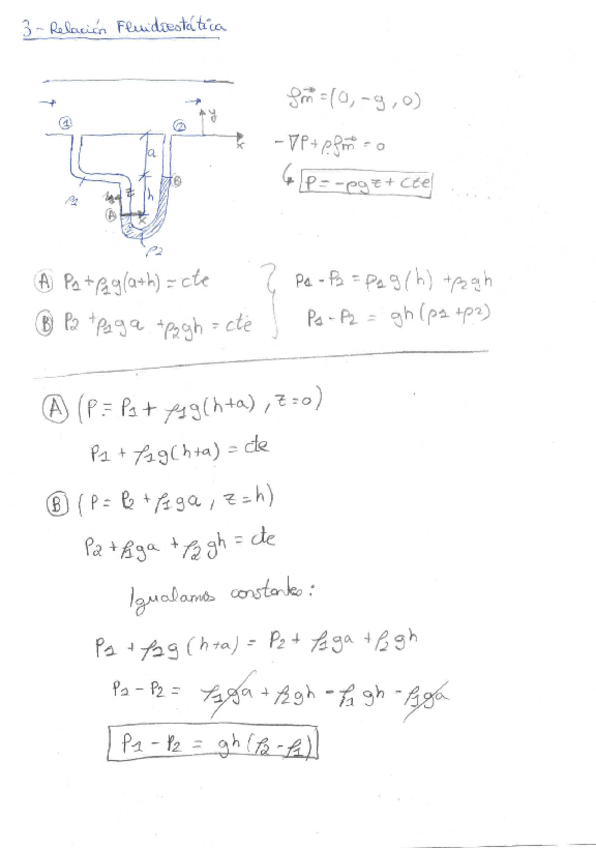 3 - Relación Fluidoestática
① ② y x
a
h
B
z
A x
ρ1
ρ2
f⃗m = (0, -g, 0)
-∇P + ρf⃗m = 0
P = -ρgz + cte
Ⓐ P1 + ρ1g(a+h) = cte
Ⓑ P2 + ρ1ga + ρ2gh = cte
P1 - P2 = ρ1g(h) + ρ2gh
P1 - P2 = gh(ρ1+ρ2)
Ⓐ (P = P1 + ρ1g(h+a), z=0)
P1 + ρ1g(h+a) = cte
Ⓑ (P = P2 + ρ1ga, z=h)
P2 + ρ1ga + ρ2gh = cte
Igualamos constantes:
P1 + ρ1g(h+a) = P2 + ρ1ga + ρ2gh
P1 - P2 = ρ1ga + ρ2gh - ρ1gh - ρ1ga
P1 - P2 = gh(ρ2-ρ1)